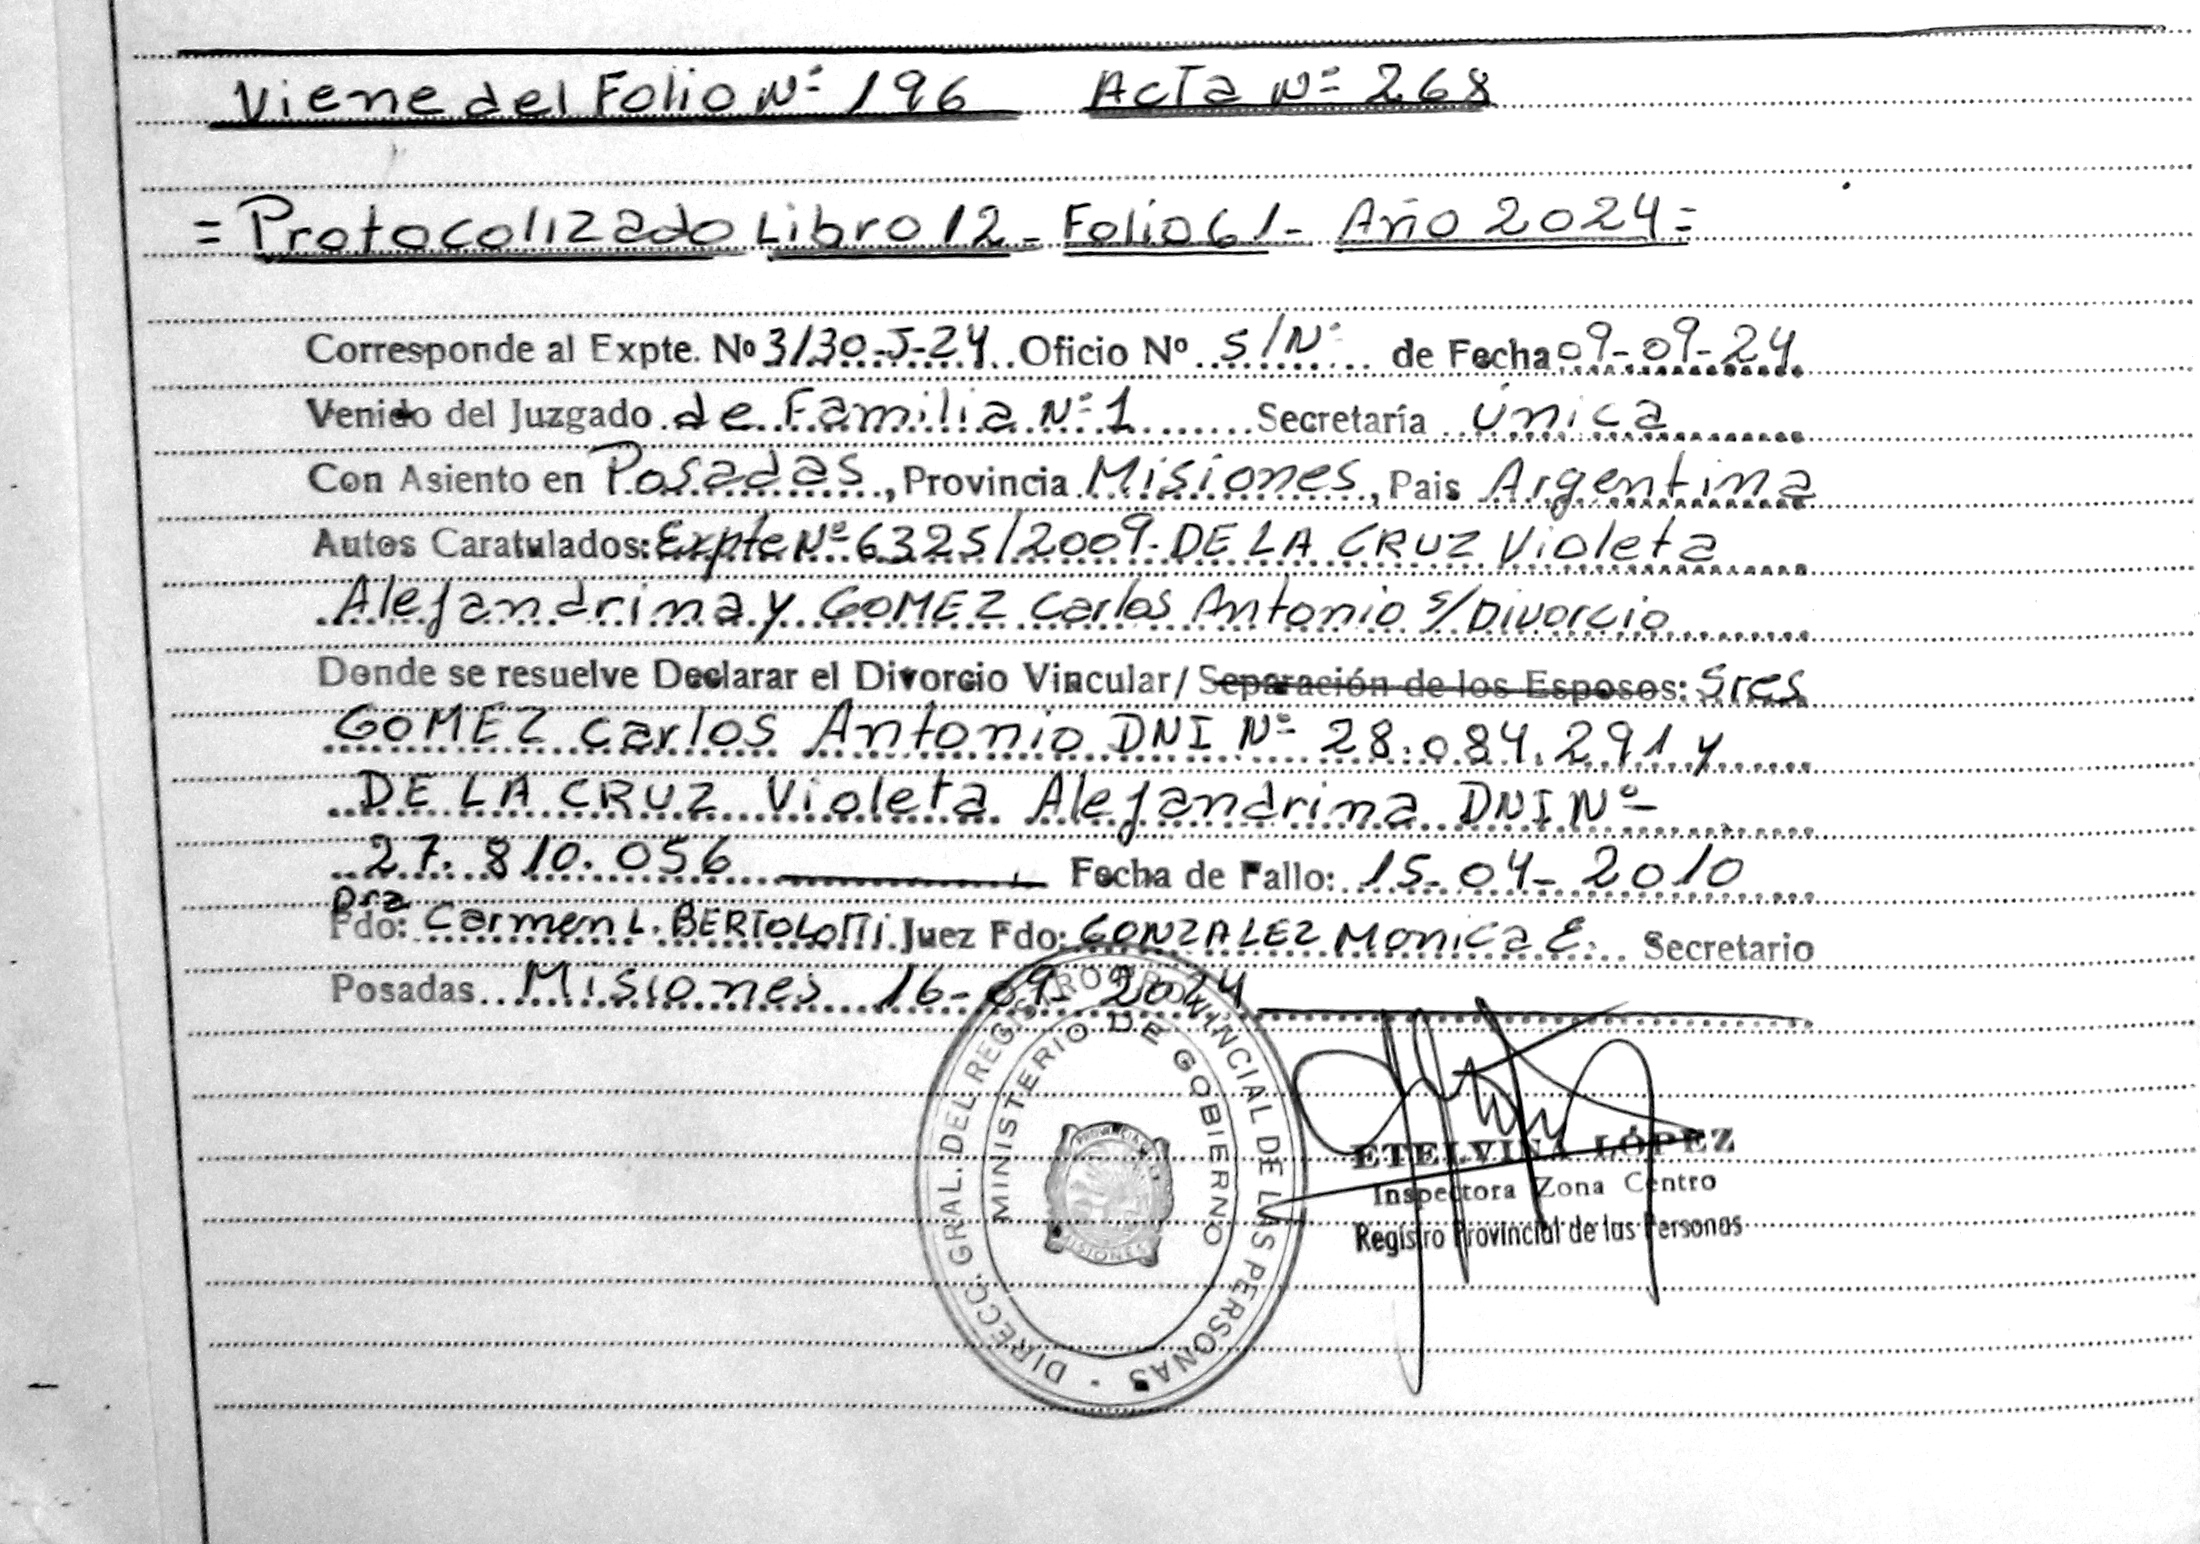 Viene del Folio Nº 196 Acta Nº 268
= Protocolizado Libro 12 - Folio 61 - Año 2024 =
Corresponde al Expte. Nº 3130-J-24 Oficio Nº S/Nº de Fecha 09-09-24
Venido del Juzgado de Familia Nº 1 Secretaría única
Con Asiento en Posadas, Provincia Misiones, Pais Argentina
Autos Caratulados: Expte Nº 6325/2009- DE LA CRUZ Violeta
Alejandrina y GOMEZ Carlos Antonio s/Divorcio
Donde se resuelve Declarar el Divorcio Vincular/ Separación de los Esposos: Sres
GOMEZ Carlos Antonio DNI Nº 28.084.291 y
DE LA CRUZ Violeta Alejandrina DNI Nº
27.810.056 Fecha de Fallo: 15-04-2010
Dra
Fdo: Carmen L. BERTOLOTTI Juez Fdo: GONZALEZ Monica E. Secretario
Posadas Misiones 16-09-2024
DIRECC. GRAL. DEL REGISTRO PROVINCIAL DE LAS PERSONAS
MINISTERIO DE GOBIERNO
PROVINCIA DE
MISIONES
ETELVINA LÓPEZ
Inspectora Zona Centro
Registro Provincial de las Personas